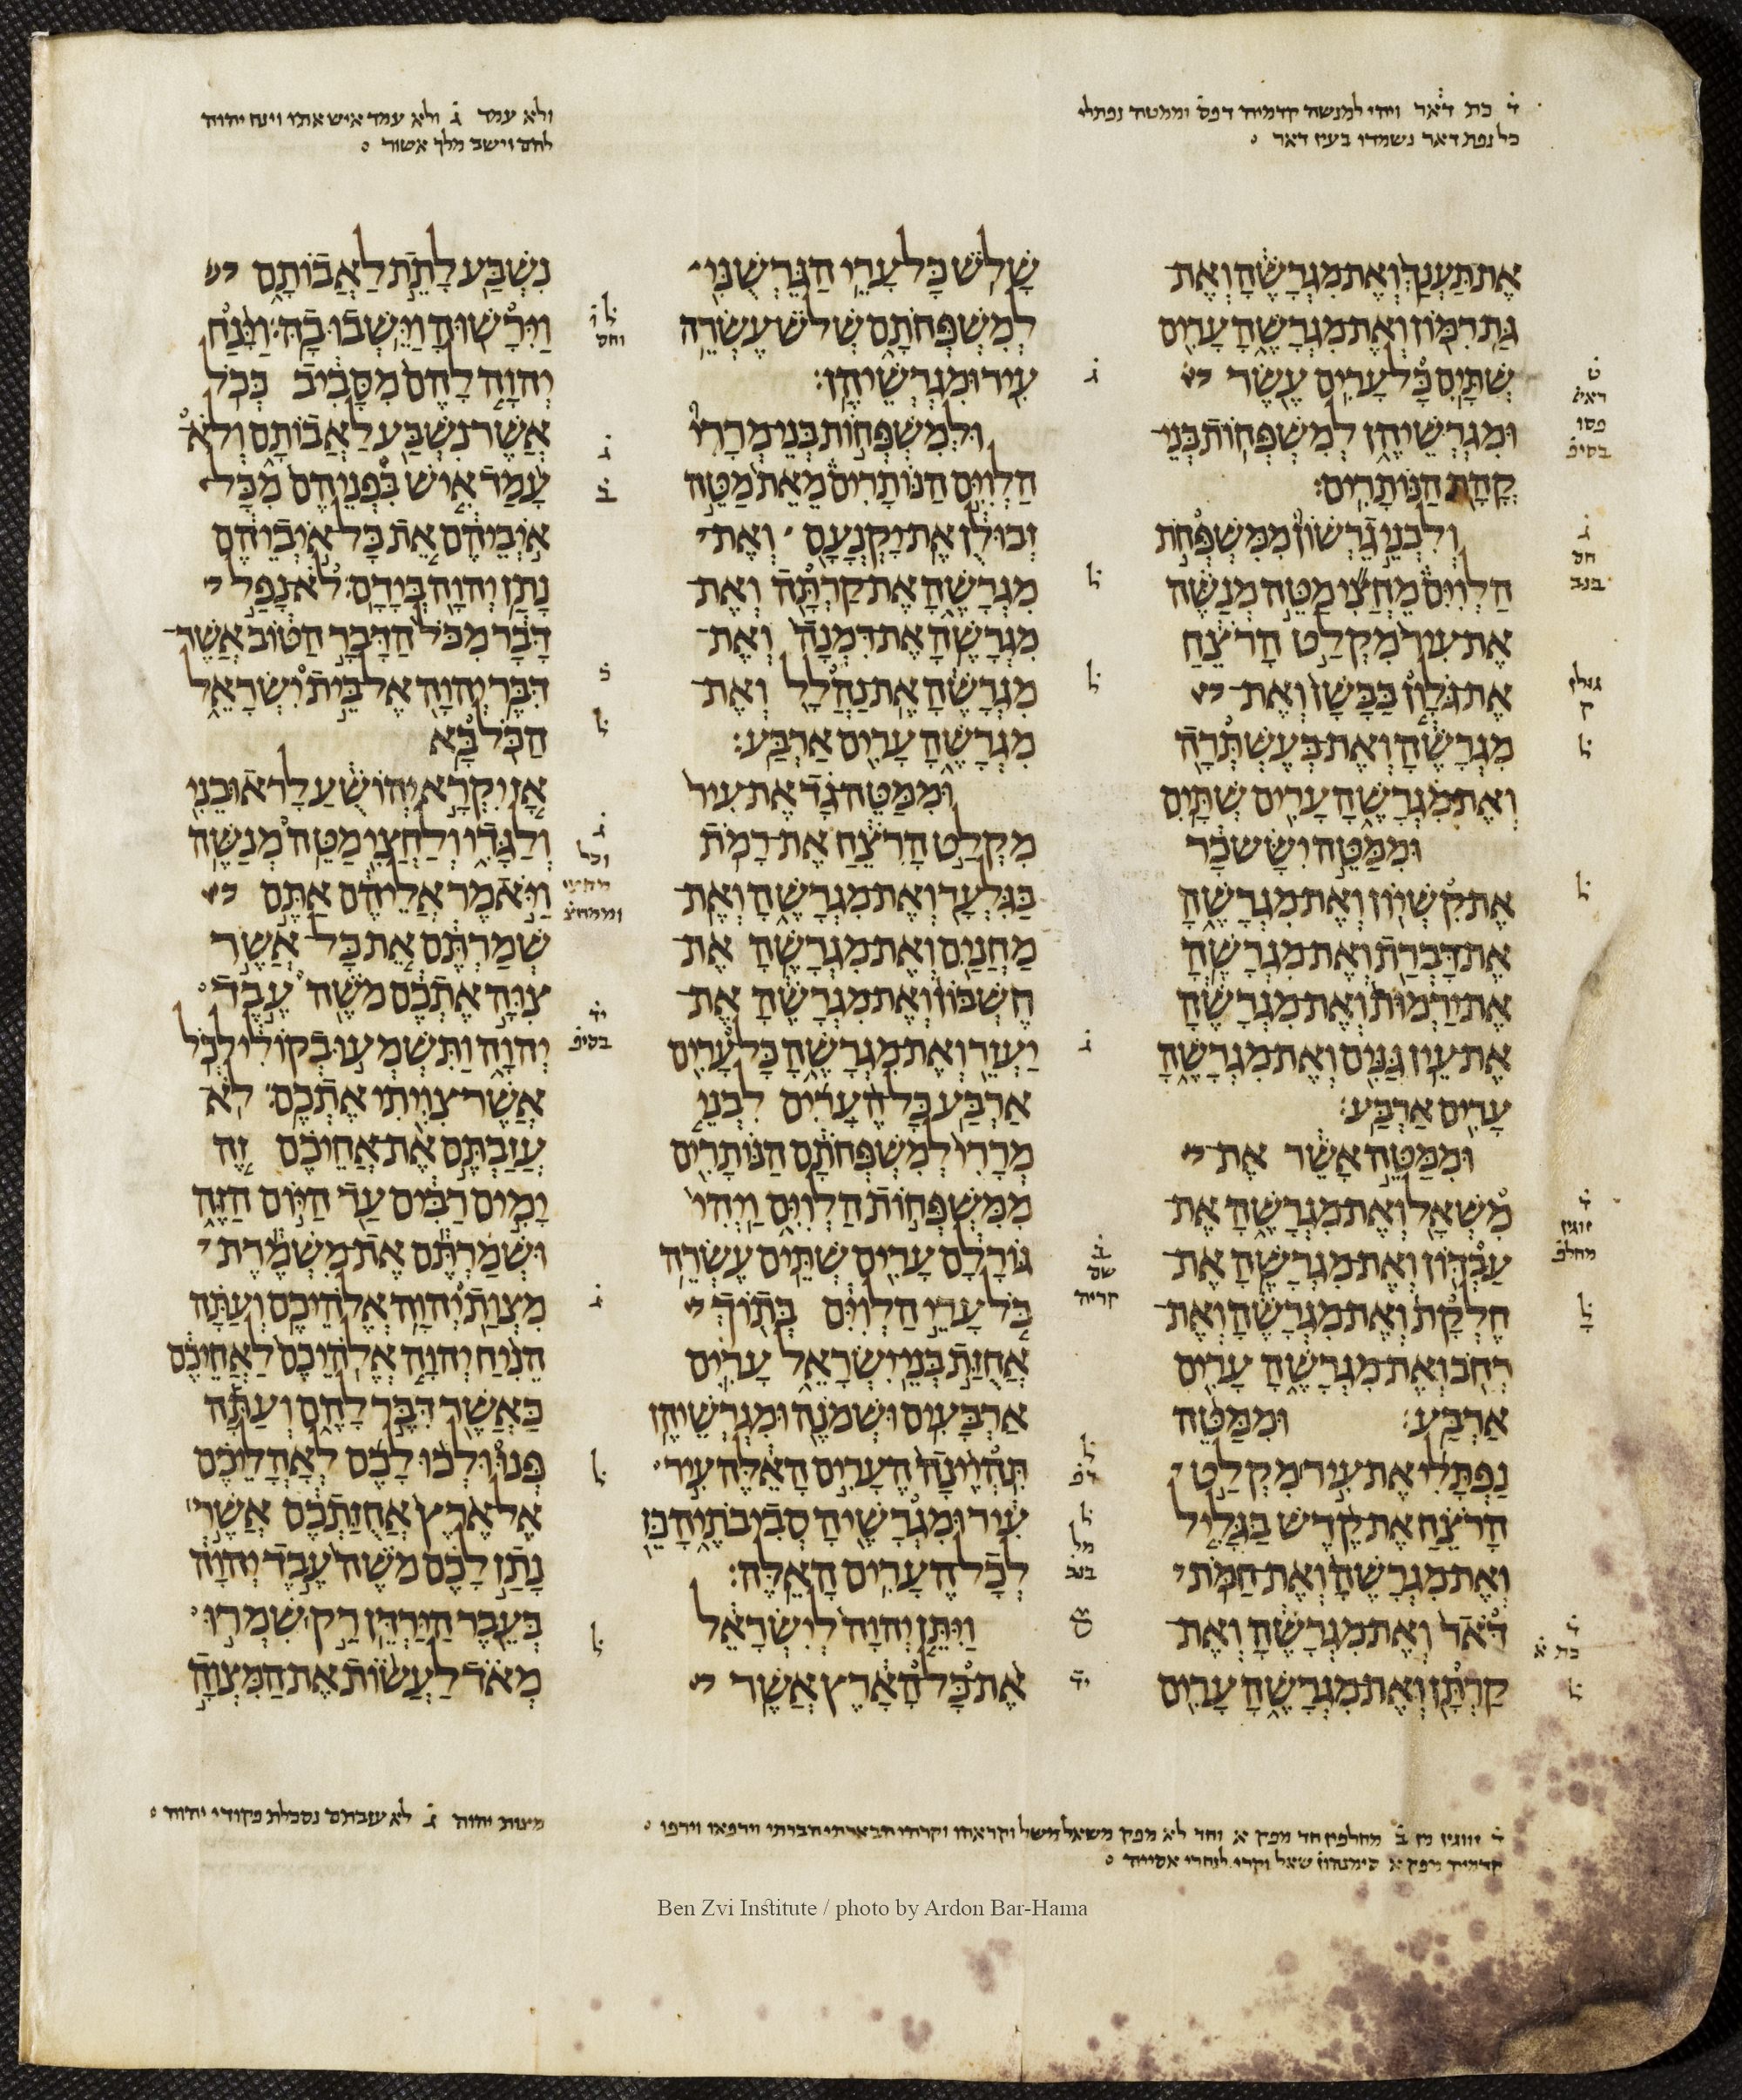 ד כת דאר ויהי למנשה קדמיה דפס וממטה נפתלי
כל נפת דאר נשמדו בעין דאר
ולא עמד ג ולא עמד איש אתו וינח יהוה
להם וישב מלך אשור
אֶת תַּעְנַךְ וְאֶת מִגְרָשֶׁהָ וְאֶת
גַּת רִמּוֹן וְאֶת מִגְרָשֶׁהָ עָרִים
שְׁתָּיִם כָּל עָרִים עֶשֶׂר
וּמִגְרְשֵׁיהֶן לְמִשְׁפְּחוֹת בְּנֵי
קְהָת הַנּוֹתָרִים׃
וְלִבְנֵי גֵרְשׁוֹן מִמִּשְׁפְּחֹת
הַלְוִיִּם מֵחֲצִי מַטֵּה מְנַשֶּׁה
אֶת עִיר מִקְלַט הָרֹצֵחַ
אֶת גֹּלָון בַּבָּשָׁן וְאֶת
מִגְרָשֶׁהָ וְאֶת בְּעֶשְׁתְּרָה
וְאֶת מִגְרָשֶׁהָ עָרִים שְׁתָּיִם
וּמִמַּטֵּה יִשָּׂשכָר
אֶת קִשְׁיוֹן וְאֶת מִגְרָשֶׁהָ
אֶת דָּבְרַת וְאֶת מִגְרָשֶׁהָ
אֶת יַרְמוּת וְאֶת מִגְרָשֶׁהָ
אֶת עֵין גַּנִּים וְאֶת מִגְרָשֶׁהָ
עָרִים אַרְבַּע׃
וּמִמַּטֵּה אָשֵׁר אֶת
מִשְׁאָל וְאֶת מִגְרָשֶׁהָ אֶת
עַבְדּוֹן וְאֶת מִגְרָשֶׁהָ אֶת
חֶלְקָת וְאֶת מִגְרָשֶׁהָ וְאֶת
רְחֹב וְאֶת מִגְרָשֶׁהָ עָרִים
אַרְבַּע׃ וּמִמַּטֵּה
נַפְתָּלִי אֶת עִיר מִקְלַט
הָרֹצֵחַ אֶת קֶדֶשׁ בַּגָּלִיל
וְאֶת מִגְרָשֶׁהָ וְאֶת חַמֹּת
דֹּאר וְאֶת מִגְרָשֶׁהָ וְאֶת
קַרְתָּן וְאֶת מִגְרָשֶׁהָ עָרִים
שָׁלֹשׁ כָּל עָרֵי הַגֵּרְשֻׁנִּי
לְמִשְׁפְּחֹתָם שְׁלֹשׁ עֶשְׂרֵה
עִיר וּמִגְרְשֵׁיהֶן׃
וּלְמִשְׁפְּחוֹת בְּנֵי מְרָרִי
הַלְוִיִּם הַנּוֹתָרִים מֵאֵת מַטֵּה
זְבוּלֻן אֶת יָקְנְעָם וְאֶת
מִגְרָשֶׁהָ אֶת קַרְתָּה וְאֶת
מִגְרָשֶׁהָ אֶת דִּמְנָה וְאֶת
מִגְרָשֶׁהָ אֶת נַהֲלָל וְאֶת
מִגְרָשֶׁהָ עָרִים אַרְבַּע׃
וּמִמַּטֵּה גָד אֶת עִיר
מִקְלַט הָרֹצֵחַ אֶת רָמֹת
בַּגִּלְעָד וְאֶת מִגְרָשֶׁהָ וְאֶת
מַחֲנַיִם וְאֶת מִגְרָשֶׁהָ אֶת
חֶשְׁבּוֹן וְאֶת מִגְרָשֶׁהָ אֶת
יַעְזֵר וְאֶת מִגְרָשֶׁהָ כָּל עָרִים
אַרְבַּע כָּל הֶעָרִים לִבְנֵי
מְרָרִי לְמִשְׁפְּחֹתָם הַנּוֹתָרִים
מִמִּשְׁפְּחוֹת הַלְוִיִּם וַיְהִי
גּוֹרָלָם עָרִים שְׁתֵּים עֶשְׂרֵה
כֹּל עָרֵי הַלְוִיִּם בְּתוֹךְ
אֲחֻזַּת בְּנֵי יִשְׂרָאֵל עָרִים
אַרְבָּעִים וּשְׁמֹנֶה וּמִגְרְשֵׁיהֶן
תִּהְיֶינָה הֶעָרִים הָאֵלֶּה עִיר
עִיר וּמִגְרָשֶׁיהָ סְבִיבֹתֶיהָ כֵּן
לְכָל הֶעָרִים הָאֵלֶּה׃
וַיִּתֵּן יְהוָה לְיִשְׂרָאֵל
אֶת כָּל הָאָרֶץ אֲשֶׁר
נִשְׁבַּע לָתֵת לַאֲבוֹתָם
וַיִּרָשׁוּהָ וַיֵּשְׁבוּ בָהּ׃ וַיָּנַח
יְהוָה לָהֶם מִסָּבִיב כְּכֹל
אֲשֶׁר נִשְׁבַּע לַאֲבוֹתָם וְלֹא
עָמַד אִישׁ בִּפְנֵיהֶם מִכָּל
אוֹיְבֵיהֶם אֵת כָּל אוֹיְבֵיהֶם
נָתַן יְהוָה בְּיָדָם׃ לֹא נָפַל
דָּבָר מִכֹּל הַדָּבָר הַטּוֹב אֲשֶׁר
דִּבֶּר יְהוָה אֶל בֵּית יִשְׂרָאֵל
הַכֹּל בָּא
אָז יִקְרָא יְהוֹשֻׁעַ לָראוּבֵנִי
וְלַגָּדִי וְלַחֲצִי מַטֵּה מְנַשֶּׁה
וַיֹּאמֶר אֲלֵיהֶם אַתֶּם
שְׁמַרְתֶּם אֵת כָּל אֲשֶׁר
צִוָּה אֶתְכֶם מֹשֶׁה עֶבֶד
יְהוָה וַתִּשְׁמְעוּ בְקוֹלִי לְכֹל
אֲשֶׁר צִוִּיתִי אֶתְכֶם׃ לֹא
עֲזַבְתֶּם אֶת אֲחֵיכֶם זֶה
יָמִים רַבִּים עַד הַיּוֹם הַזֶּה
וּשְׁמַרְתֶּם אֶת מִשְׁמֶרֶת
מִצְוַת יְהוָה אֱלֹהֵיכֶם׃ וְעַתָּה
הֵנִיחַ יְהוָה אֱלֹהֵיכֶם לַאֲחֵיכֶם
כַּאֲשֶׁר דִּבֶּר לָהֶם וְעַתָּה
פְּנוּ וּלְכוּ לָכֶם לְאָהֳלֵיכֶם
אֶל אֶרֶץ אֲחֻזַּתְכֶם אֲשֶׁר
נָתַן לָכֶם מֹשֶׁה עֶבֶד יְהוָה
בְּעֵבֶר הַיַּרְדֵּן׃ רַק שִׁמְרוּ
מְאֹד לַעֲשׂוֹת אֶת הַמִּצְוָה
ד זווגין מן ב מחלפין חד מפק א וחד לא מפק משאל משל
מצות יהוה ג לא עזבתם נסכלת פקודי יהוה
Ben Zvi Institute / photo by Ardon Bar-Hama